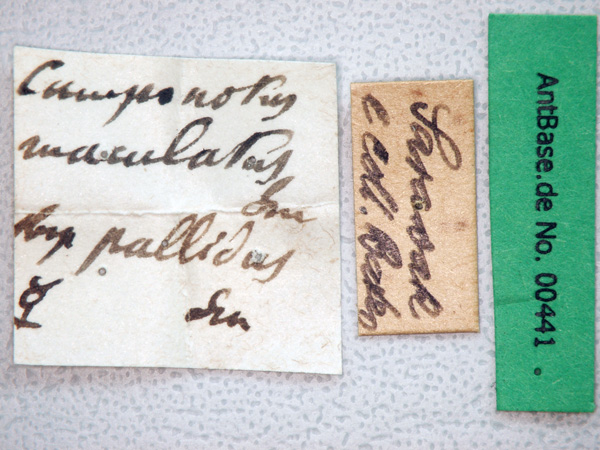 Camponotus
maculatus
Sm
ssp pallidus
☿ Sm
Sarawak
e coll.
AntBase.de No. 00441